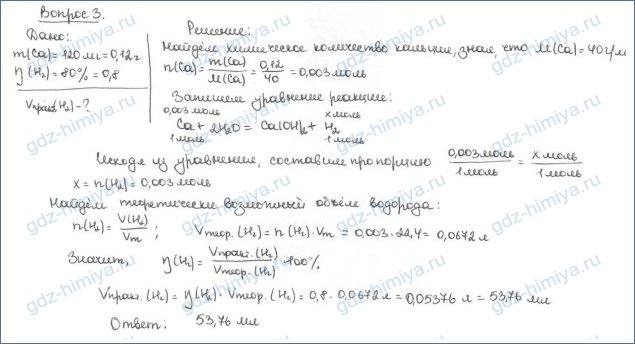 Вопрос 3.
Дано:
m(Ca)=120 мг=0,12г
η(H₂)=80%=0,8
Vпракт.(H₂)-?
Решение:
Найдём химическое количество кальция, зная, что M(Ca)=40г/м
n(Ca)= m(Ca)/M(Ca) = 0,12/40 = 0,003моль
Запишем уравнение реакции:
0,003моль x моль
Ca + 2H₂O = Ca(OH)₂ + H₂
1моль 1моль
Исходя из уравнения, составим пропорцию 0,003моль/1моль = x моль/1моль
x = n(H₂) = 0,003 моль
Найдём теоретически возможный объём водорода:
n(H₂)= V(H₂)/Vm ; Vтеор.(H₂) = n(H₂)·Vm = 0,003·22,4 = 0,0672 л
Значит, η(H₂)= Vпракт.(H₂)/Vтеор.(H₂) ·100%
Vпракт.(H₂) = η(H₂)·Vтеор.(H₂) = 0,8·0,0672л = 0,05376 л = 53,76 мл
Ответ: 53,76 мл
gdz-himiya.ru